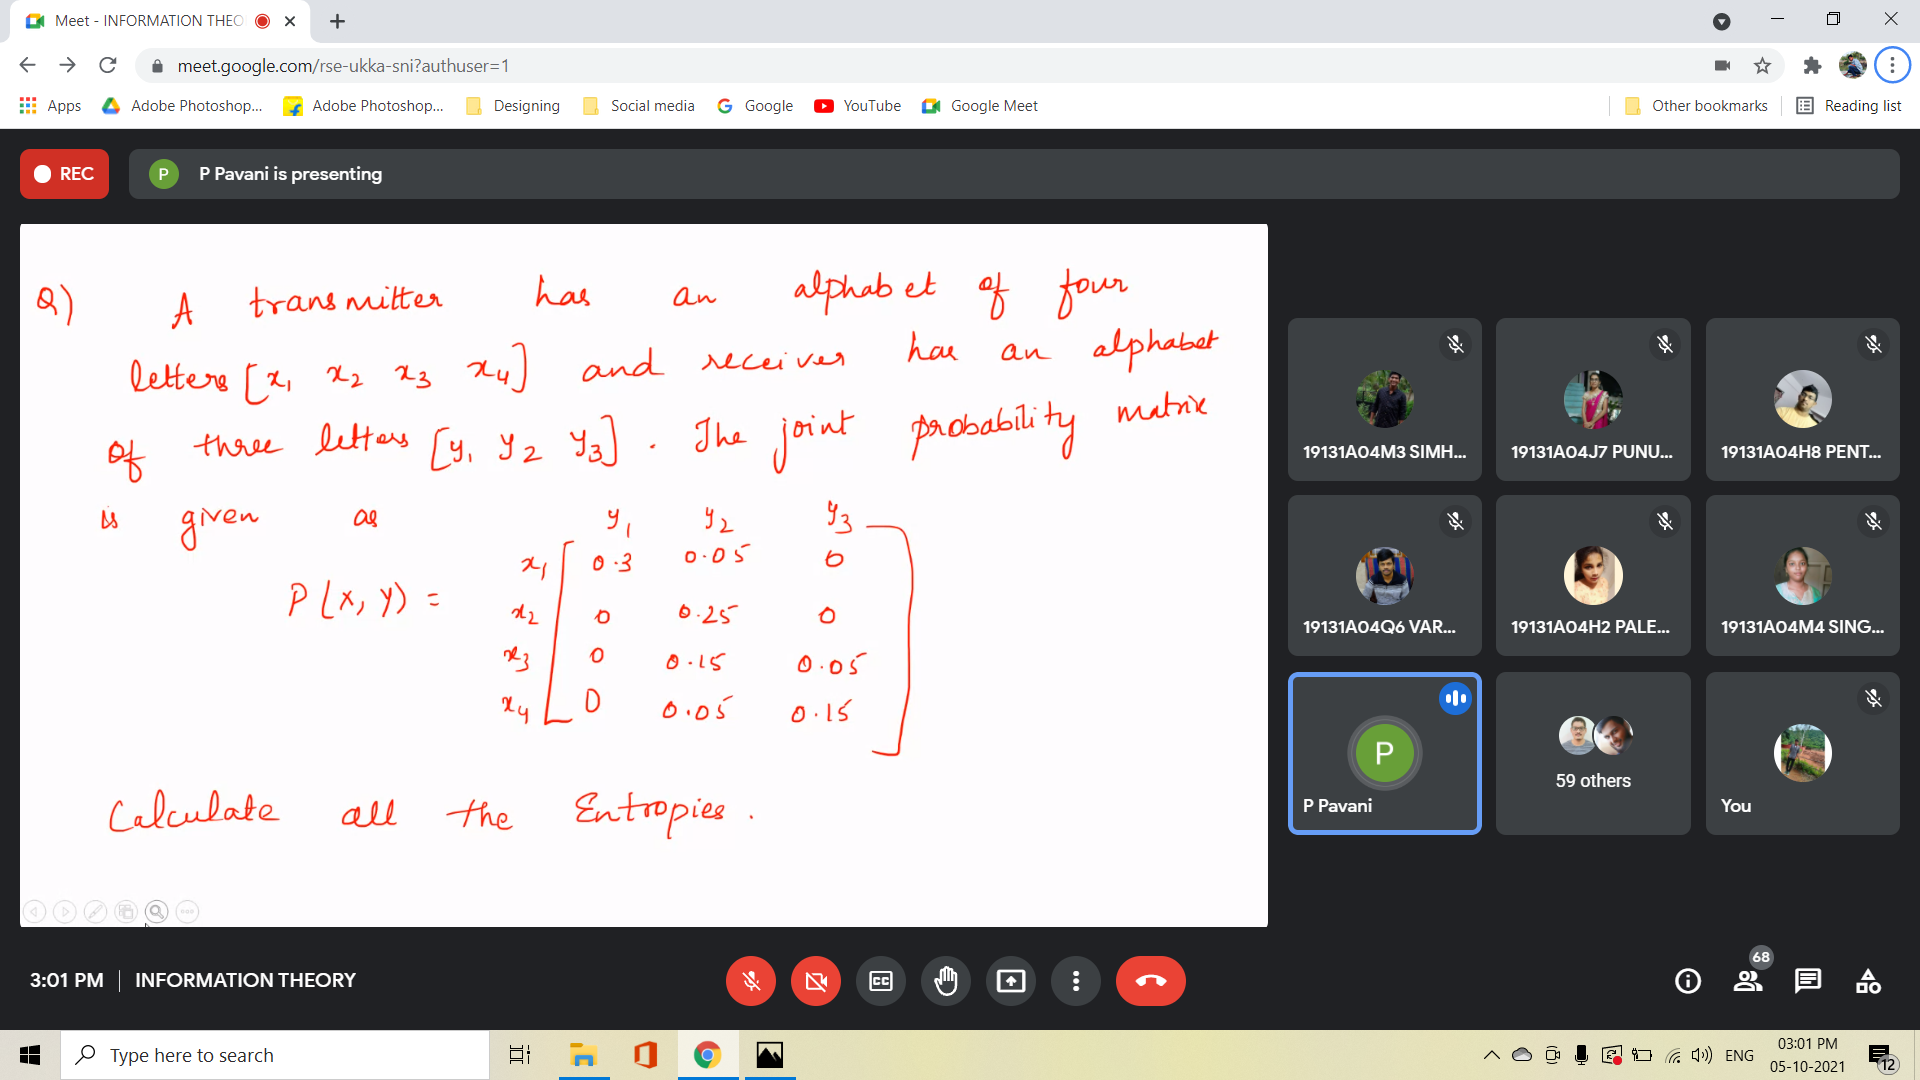 Meet - INFORMATION THEO
meet.google.com/rse-ukka-sni?authuser=1
Apps
Adobe Photoshop...
Adobe Photoshop...
Designing
Social media
Google
YouTube
Google Meet
Other bookmarks
Reading list
REC
P
P Pavani is presenting
Q) A transmitter has an alphabet of four
letters [x1 x2 x3 x4] and receiver has an alphabet
of three letters [y1 y2 y3]. The joint probability matrix
is given as
y1 y2 y3
x1 0.3 0.05 0
P(X, Y) =
x2 0 0.25 0
x3 0 0.15 0.05
x4 0 0.05 0.15
Calculate all the Entropies.
19131A04M3 SIMH...
19131A04J7 PUNU...
19131A04H8 PENT...
19131A04Q6 VAR...
19131A04H2 PALE...
19131A04M4 SING...
P
P Pavani
59 others
You
3:01 PM | INFORMATION THEORY
CC
68
Type here to search
ENG
03:01 PM
05-10-2021
12